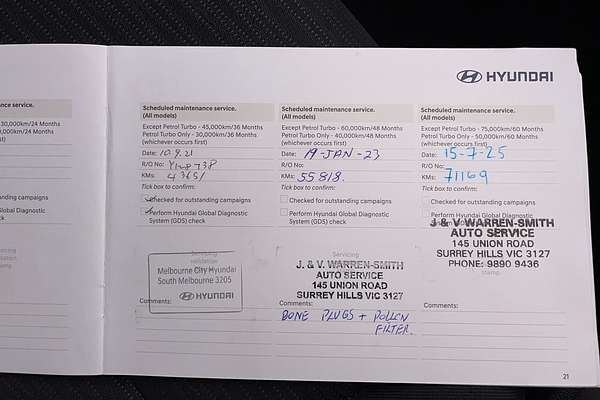 HYUNDAI
nce service.
30,000km/24 Months
0,000km/24 Months
tanding campaigns
lobal Diagnostic
Scheduled maintenance service.
(All models)
Except Petrol Turbo - 45,000km/36 Months
Petrol Turbo Only - 30,000km/36 Months
(whichever occurs first)
Date: 10.9.21
R/O No:
KMs: 43651
Tick box to confirm:
Checked for outstanding campaigns
Perform Hyundai Global Diagnostic
System (GDS) check
Melbourne City Hyundai
South Melbourne 3205
HYUNDAI
Comments:
Scheduled maintenance service.
(All models)
Except Petrol Turbo - 60,000km/48 Months
Petrol Turbo Only - 40,000km/48 Months
(whichever occurs first)
Date: 19-JAN-23
R/O No:
KMs: 55818.
Tick box to confirm:
Checked for outstanding campaigns
Perform Hyundai Global Diagnostic
System (GDS) check
J. & V. WARREN-SMITH
AUTO SERVICE
145 UNION ROAD
SURREY HILLS VIC 3127
Comments:
DONE PLUGS + POLLEN
FILTER.
Scheduled maintenance service.
(All models)
Except Petrol Turbo - 75,000km/60 Months
Petrol Turbo Only - 50,000km/60 Months
(whichever occurs first)
Date: 15-7-25
R/O No:
KMs: 71169
Tick box to confirm:
Checked for outstanding campaigns
Perform Hyundai Global Diagnostic
System (GDS) check
J & V WARREN-SMITH
AUTO SERVICE
145 UNION ROAD
SURREY HILLS VIC 3127
PHONE: 9890 9436
stamp
Comments:
21